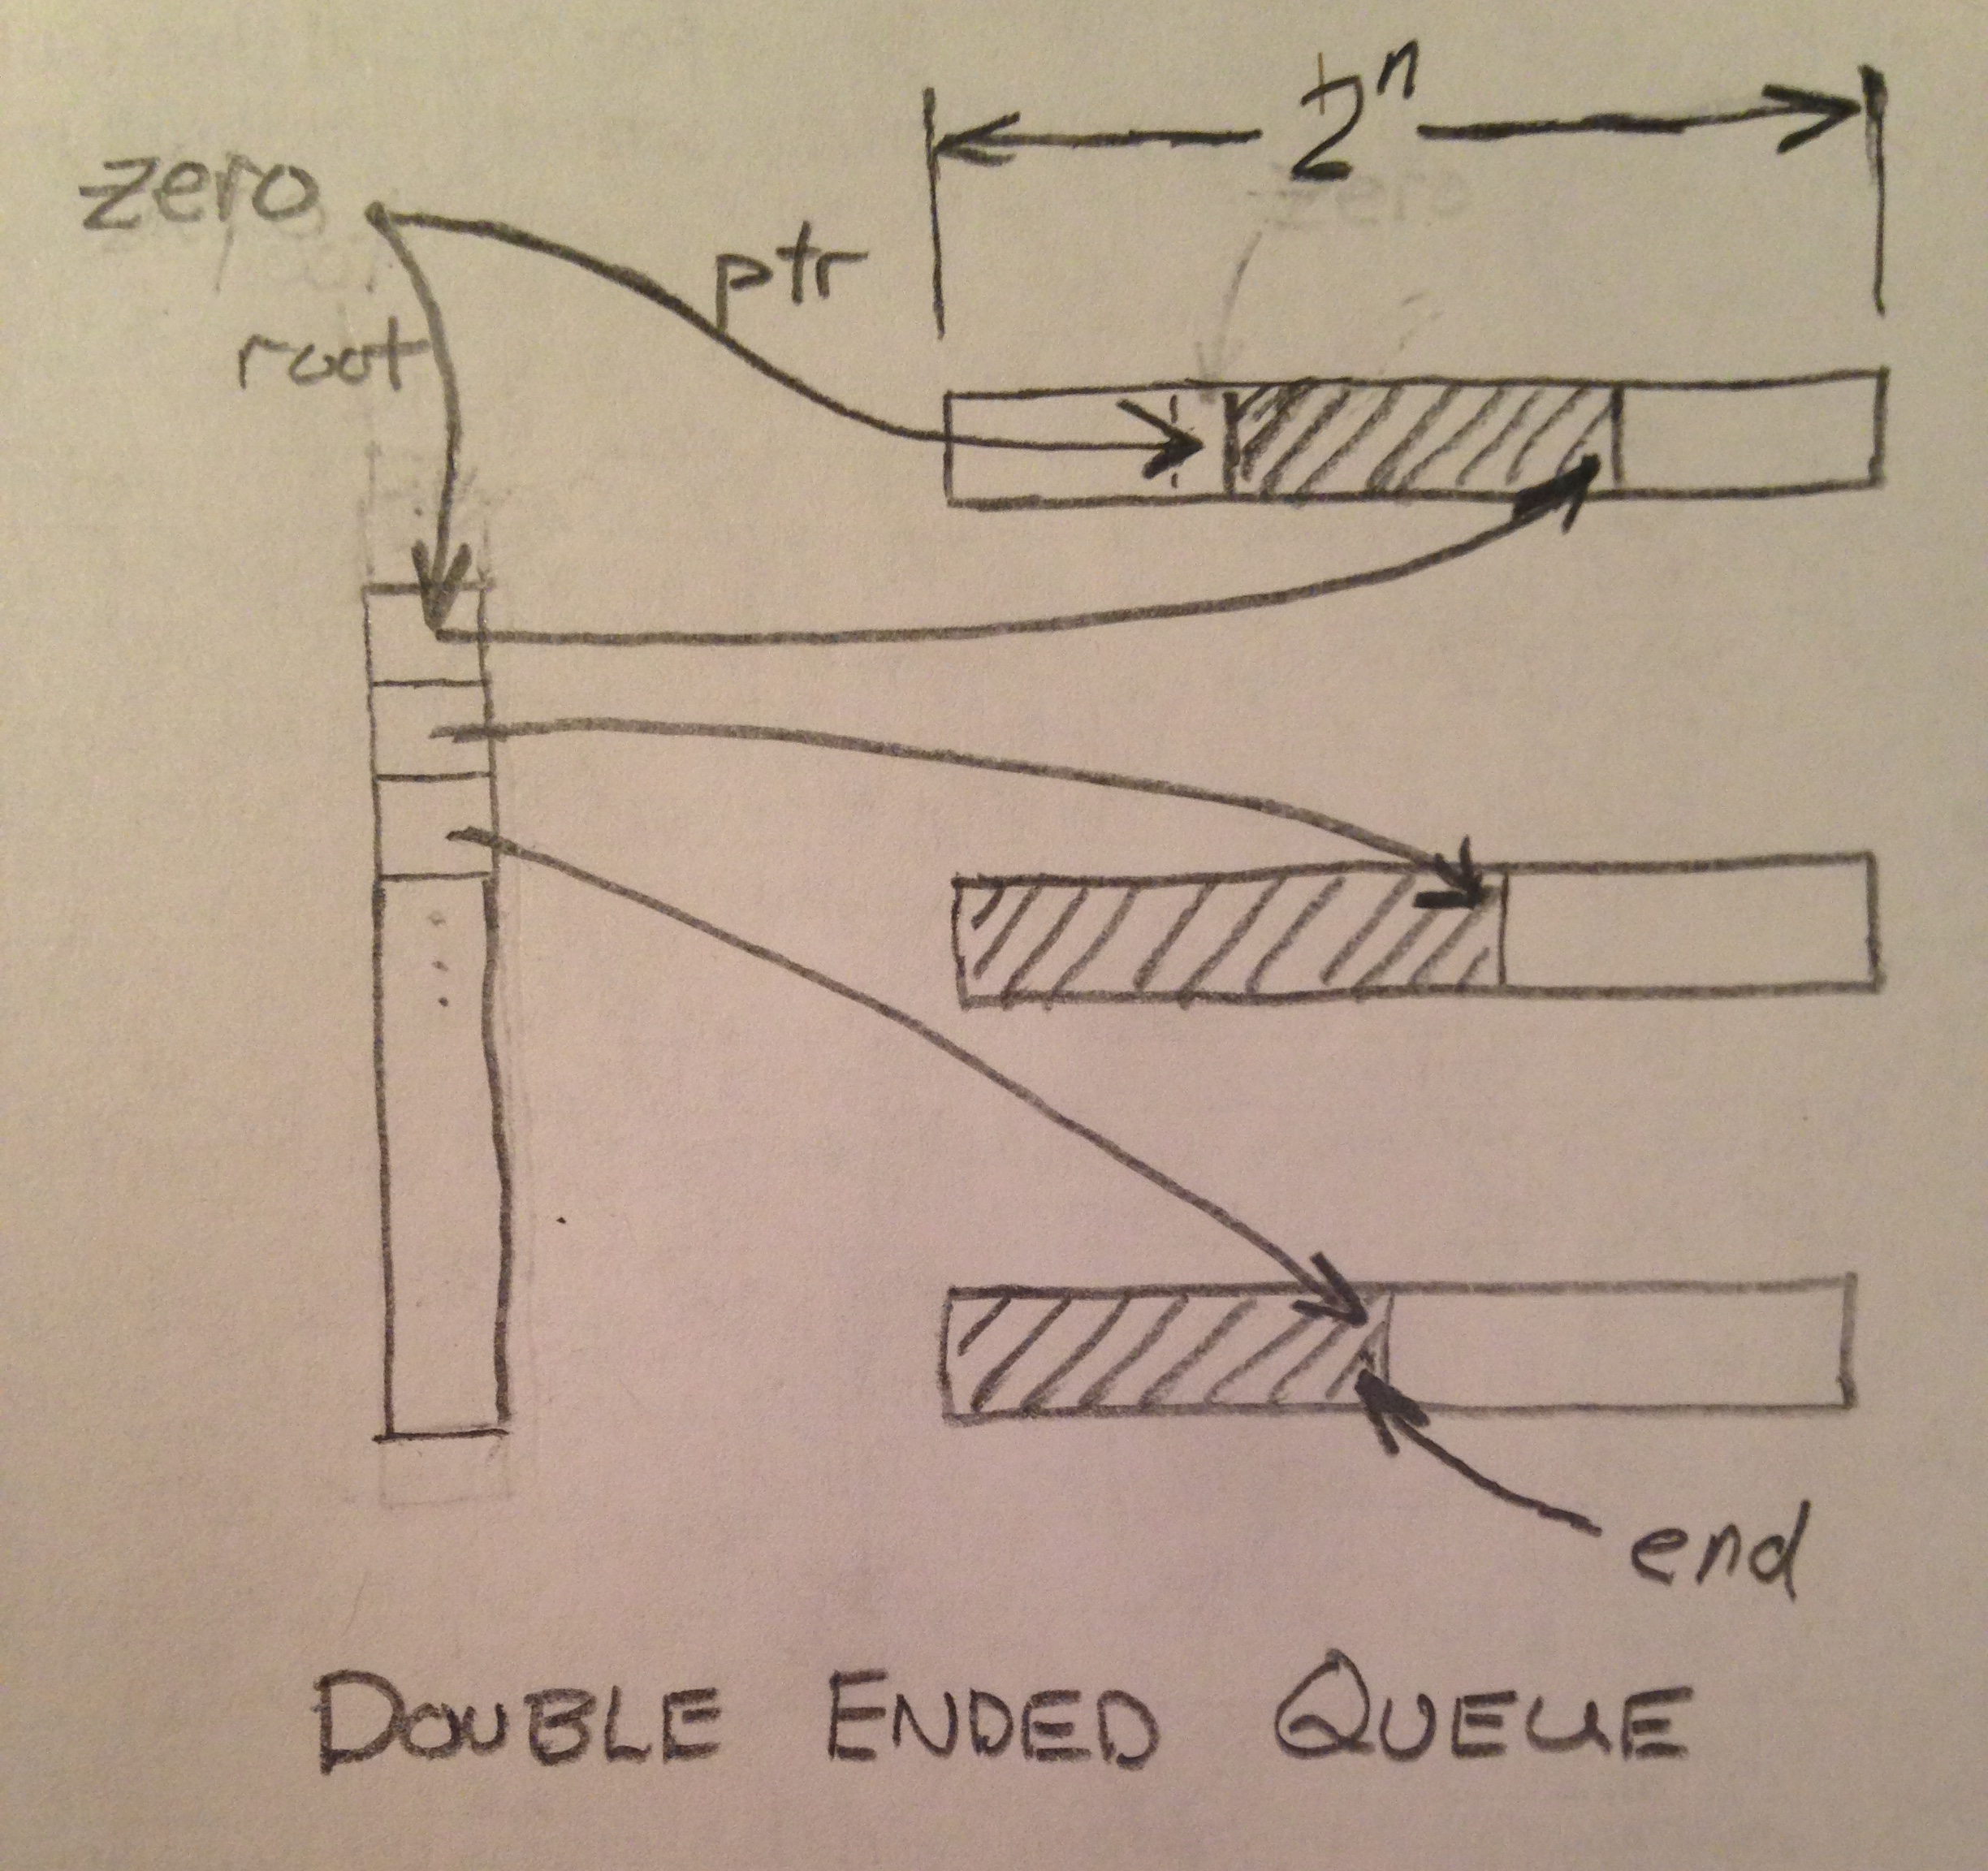 2ⁿ
zero
zero
ptr
root
end
DOUBLE ENDED QUEUE